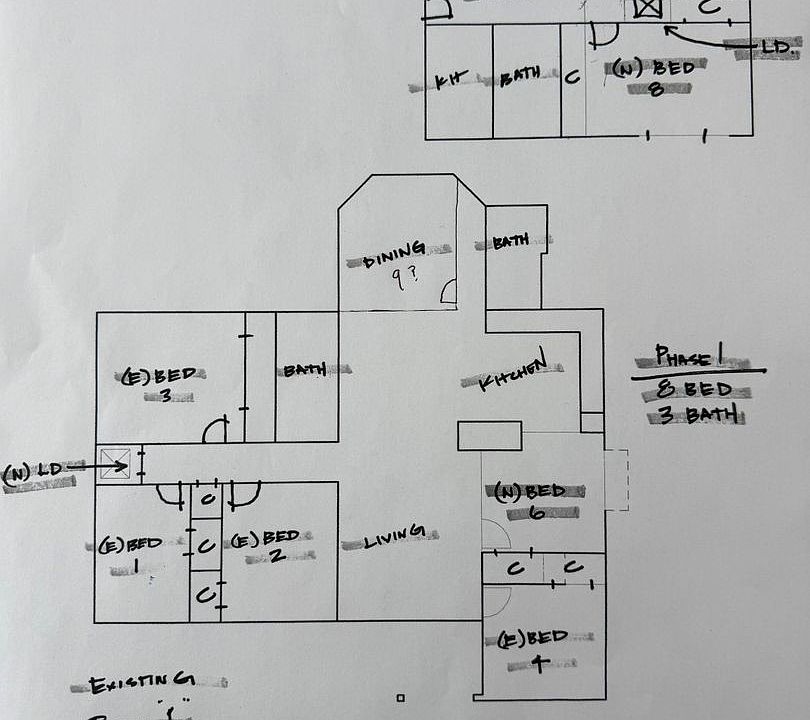 C
LD.
KH
BATH
C
(N) BED
8
DINING
9?
BATH
(E) BED
3
BATH
KITCHEN
PHASE 1
8 BED
3 BATH
(N) LD
(E) BED
1
C
C
C
(E) BED
2
LIVING
(N) BED
6
C
C
(E) BED
4
EXISTING